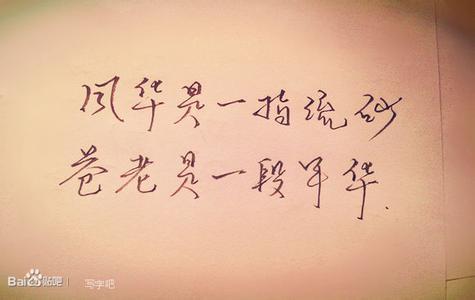 风华是一指流砂
苍老是一段年华.
Bai贴吧 写字吧